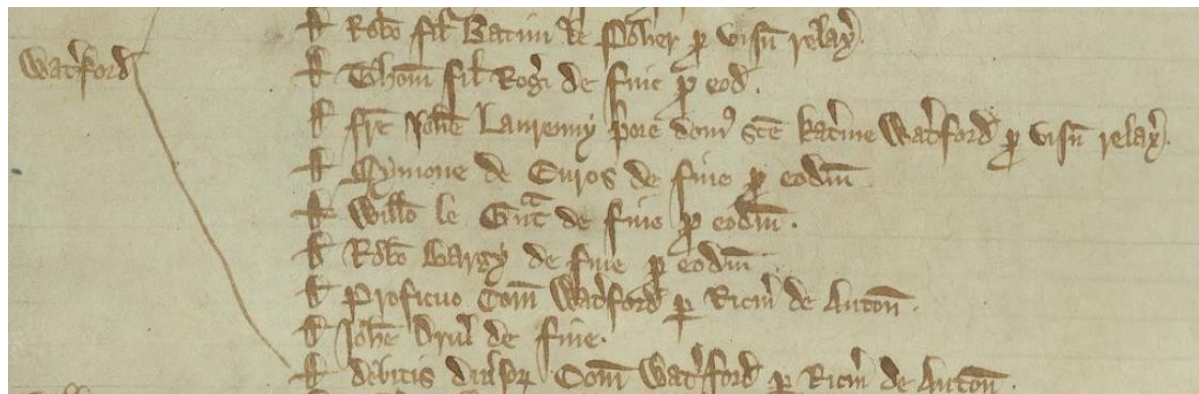 D Robto fil Batini le Poher p visu relax.
Waterford D Thom fil Rogi de fine p eod.
D frē Johē Laurenny pore dom sce Katine Watford p visu relax.
D Symone de Euros de fine p eodm
D Willo le Gnt de fine p eodm.
D Robto Bargy de fine p eodm
D Proficuo Com Watford p Ricm de Anton.
D Johē Druil de fine.
D debitis divsor Com Watford p Ricm de Anton.